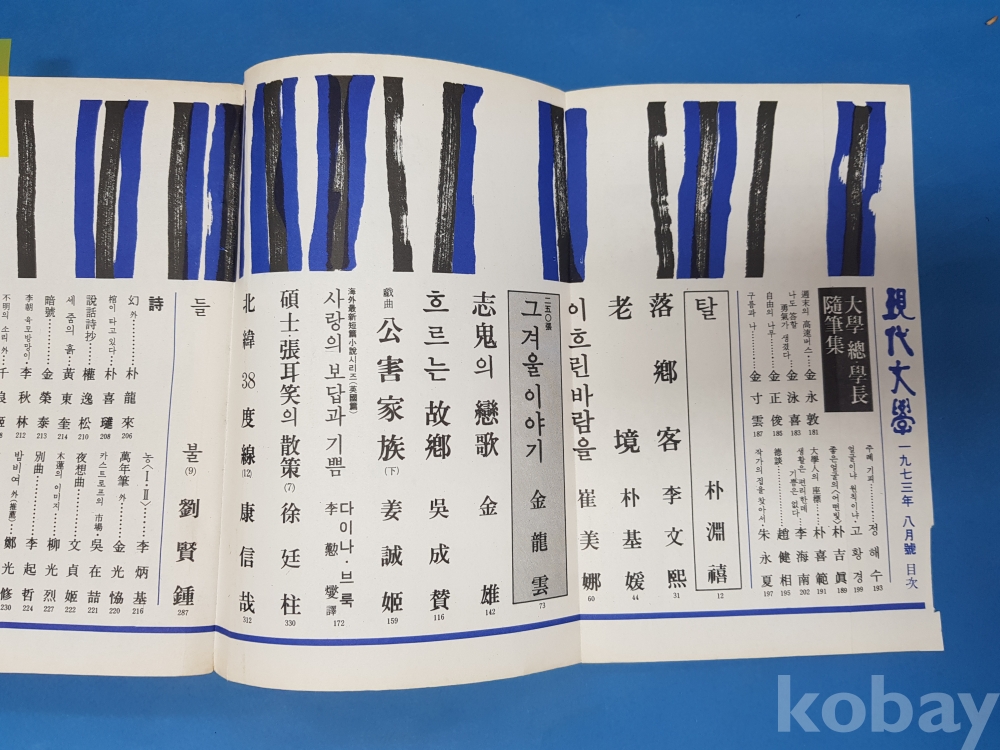 現代文學 一九七三年 八月號 目次
大學 總·學長
隨筆集
週末의 高速버스…金永敦 181
나도 答할
勇氣가 생겼다…金泳喜 183
自由의 나무…金正俊 185
구름과 나…金寸雲 187
주례 기피…정해수 193
얼굴이냐 뭔척이냐·고황경 199
좋은얼굴의〈어떤빛〉朴吉眞 189
大學人의 座標…朴喜範 191
생활은 편리한데
기쁨은 없다…李海南 202
德談…趙健相 195
작가의 집을 찾아서·朱永夏 197
탈 朴淵禧 12
落鄕客 李文熙 31
老境 朴基媛 44
이 흐린 바람을 崔美娜 60
二五○張
그 겨울 이야기 金龍雲 73
志鬼의 戀歌 金雄 142
흐르는 故鄕 吳成贊 116
戱曲
公害家族(下) 姜誠姬 159
海外最新短篇小說시리즈(英國篇)
사랑의 보답과 기쁨 다이나·브룩
李勳燮譯 172
碩士 張耳笑의 散策(7) 徐廷柱 330
北緯38度線(12) 康信哉 312
들불(9) 劉賢鍾 287
詩
幻 外…朴龍來 206
棺이 타고 있다…朴喜璡 208
說話詩抄…權逸松 210
세 줌의 흙…黃東奎 214
暗號…金榮泰 213
李朝 육모방망이·李秋林 212
不明의 소리 外·千良姬
농〈Ⅰ·Ⅱ〉…李炳基 216
萬年筆 外…金光協 220
카스트로프의 市場·吳在喆 221
夜想曲…文貞姬 222
木蓮의 이미지…柳光烈 227
別曲…李起哲 224
밤비여 外(推薦)·鄭光修 230
kobay